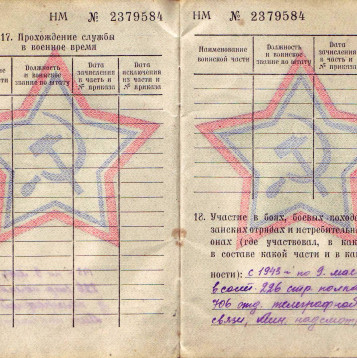 НМ № 2379584
17. Прохождение службы
в военное время
Должность
и воинское
звание по штату
Дата
зачисления
в часть и
№ приказа
Дата
исключения
из части и
№ приказа
НМ № 2379584
Наименование
воинской части
Должность
и воинское
звание по штату
Дата
зачисления
в часть и
№ приказа
18. Участие в боях, боевых поход
занских отрядах и истребительн
онах (где участвовал, в как
в составе какой части и в ка
ности): с 1943 - по 9. мая
в сост. 226 стр. полка
706 отд. телеграфной
связи, надсмот